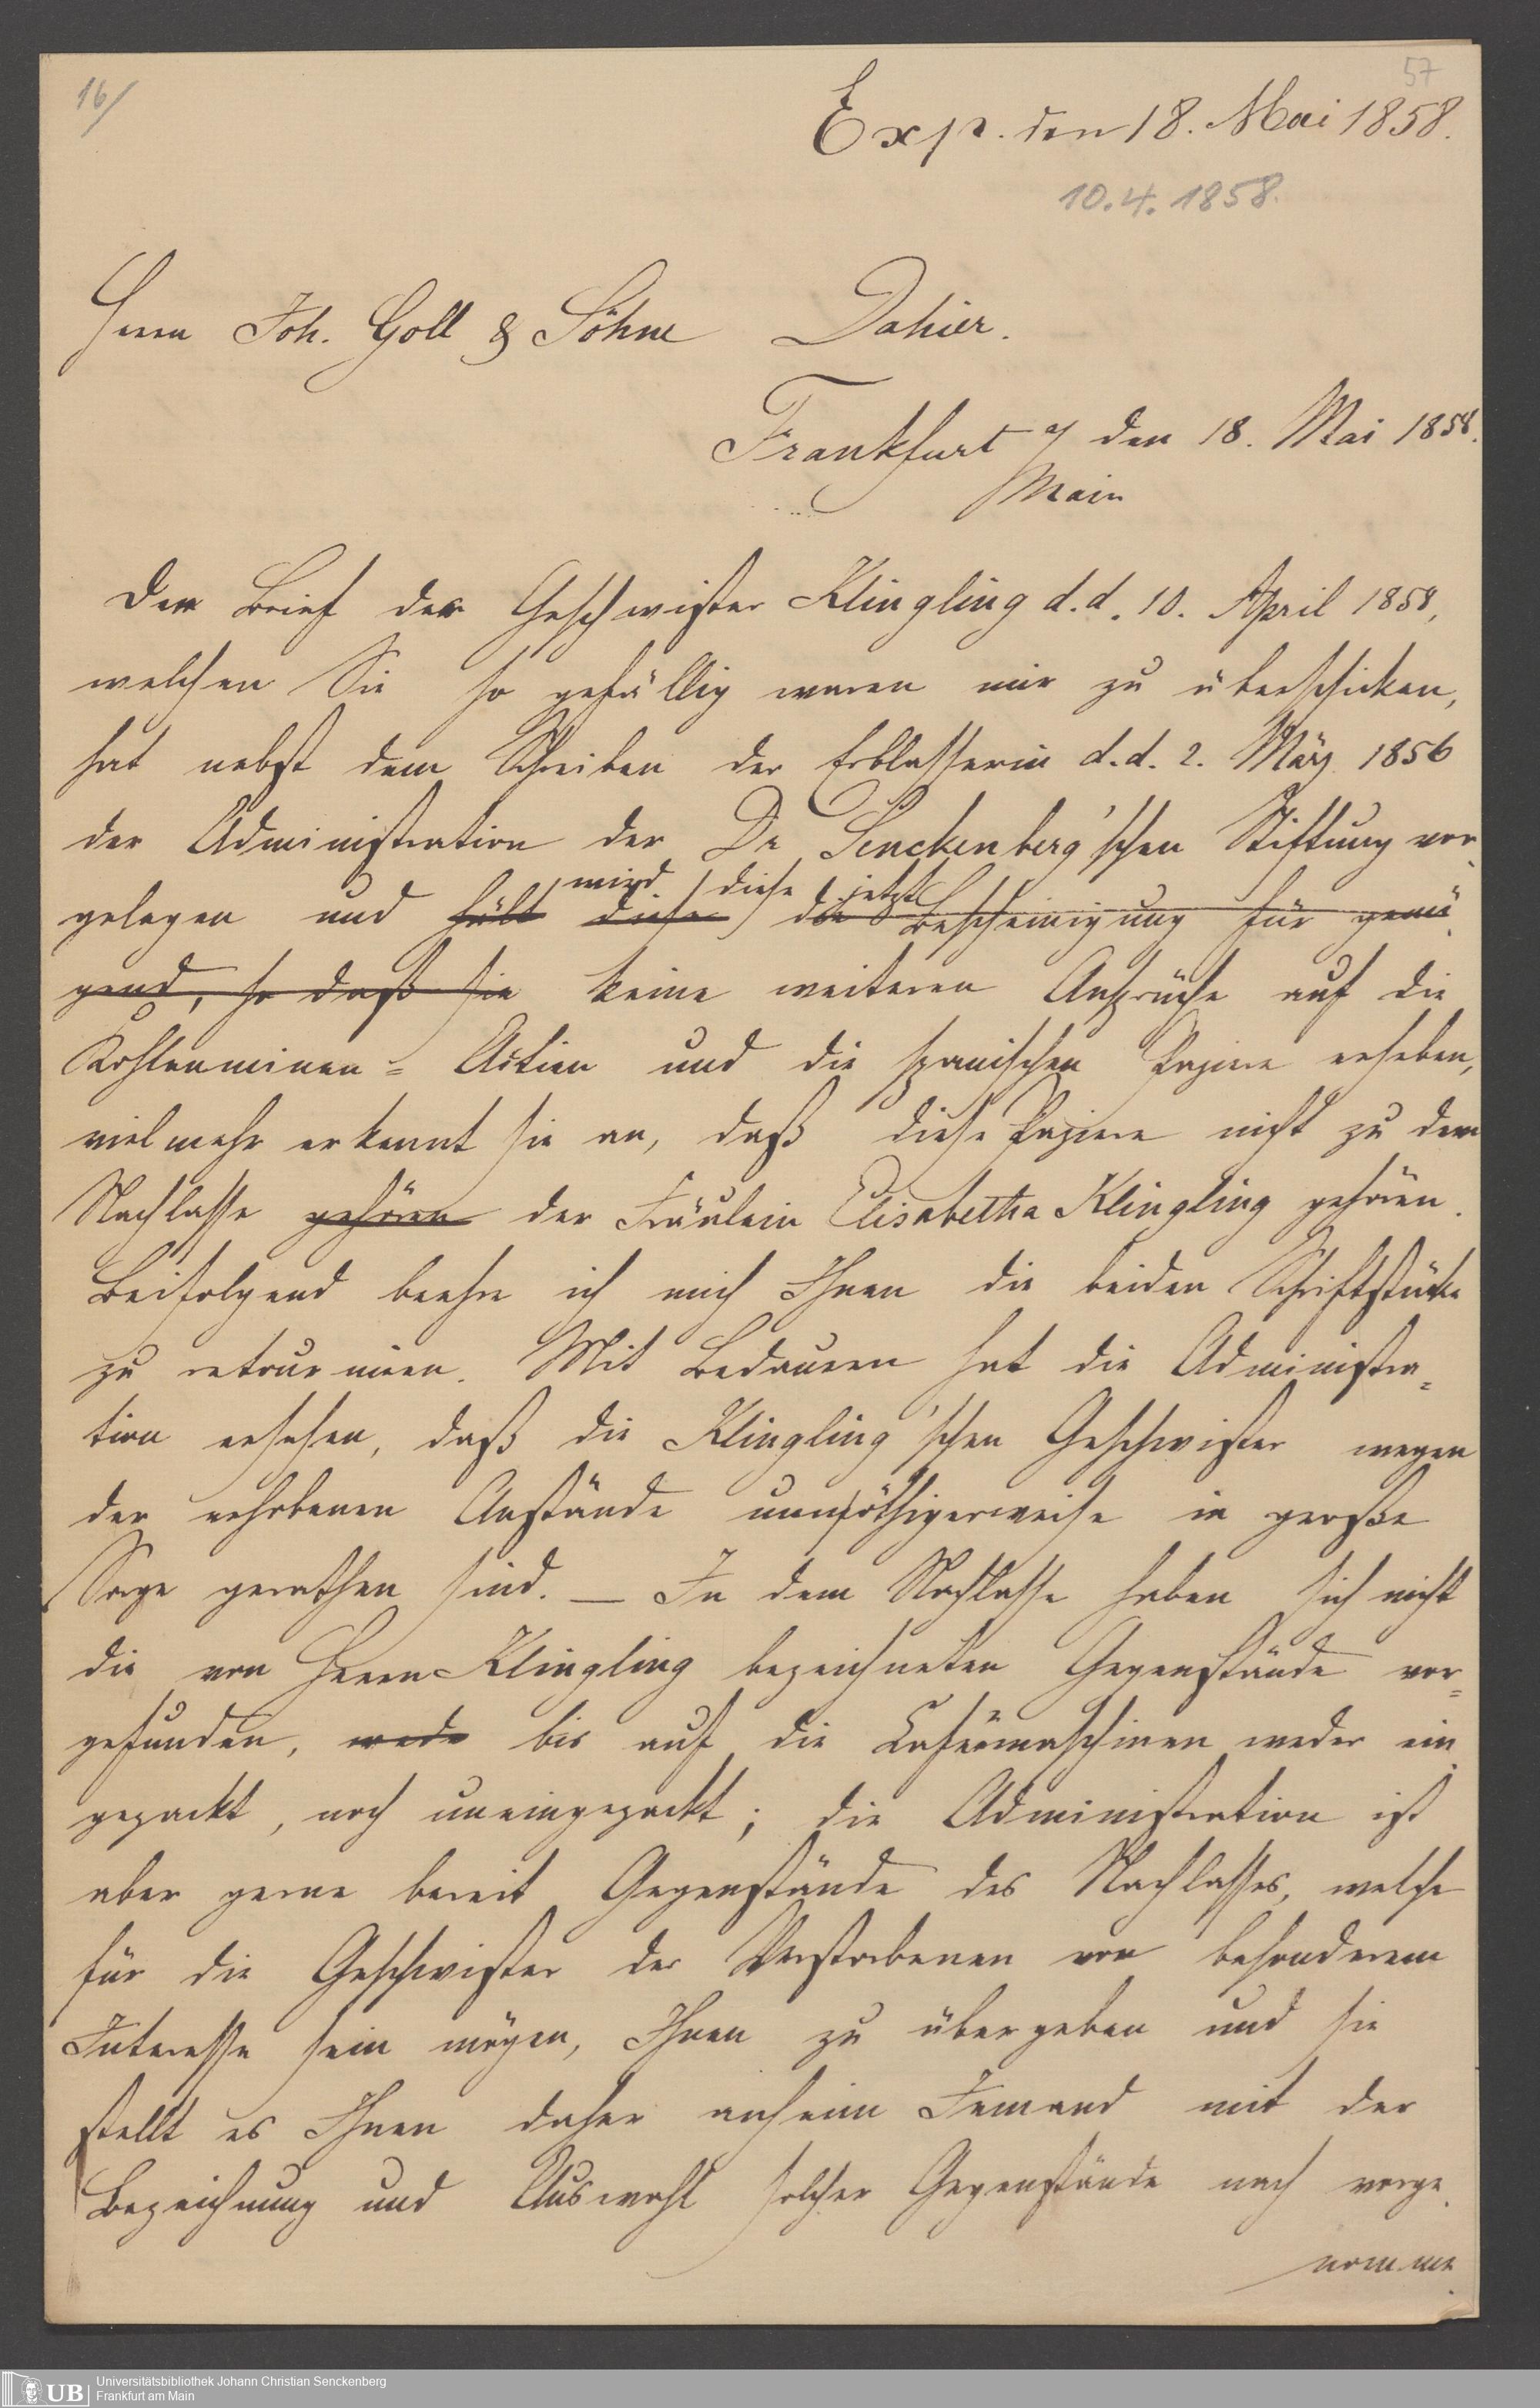 16/
57
Exp. den 18. Mai 1858.
10.4.1858.
Herrn Joh. Goll & Söhne Dahier.
Frankfurt a/ den 18. Mai 1858.
Main
Der Brief der Geschwister Klingling d. d. 10. April 1858,
welchen Sie so gefällig waren mir zu überschicken,
hat nebst dem Schreiben der Erblasserin d. d. 2. März 1856
der Administration der Dr Senckenberg'schen Stiftung vor
wird diese jetzt
gelegen und hält diese die Bescheinigung für genü
gend, so daß sie keine weiteren Ansprüche auf die
Kohlenminen = Actien und die spanischen Papiere erheben,
vielmehr erkennt sie an, daß diese Papiere nicht zu dem
Nachlasse gehören der Fräulein Elisabetha Klingling gehören.
Beifolgend beehre ich mich Ihnen die beiden Schriftstücke
zu retourniren. Mit Bedauern hat die Administra=
tion ersehen, daß die Klingling'schen Geschwister wegen
der erhobenen Anstände unnöthigerweise in große
Sorge gerathen sind. — In dem Nachlasse haben sich nicht
die von Herrn Klingling bezeichneten Gegenstände vor=
gefunden, wede bis auf die Caféemaschinen weder ein
gepackt, noch uneingepackt; die Administration ist
aber gerne bereit Gegenstände des Nachlasses, welche
für die Geschwister der Verstorbenen von besonderem
Interesse sein mögen, Ihnen zu übergeben und sie
stellt es Ihnen daher anheim Jemand mit der
Bezeichnung und Auswahl solcher Gegenstände nach vorge
nomme
UB
Universitätsbibliothek Johann Christian Senckenberg
Frankfurt am Main